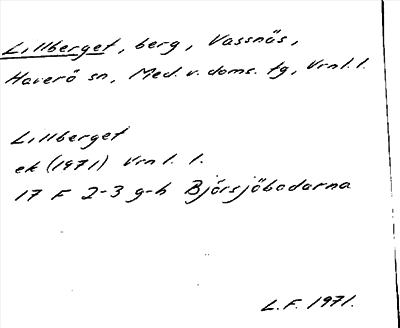 Lillberget, berg, Vassnäs,
Haverö sn, Med. v. doms. tg, Vrnl. l.
Lillberget
ek (1971) Vrnl. l.
17 F 2-3 g-h Björsjöbodarna
L.F. 1971.